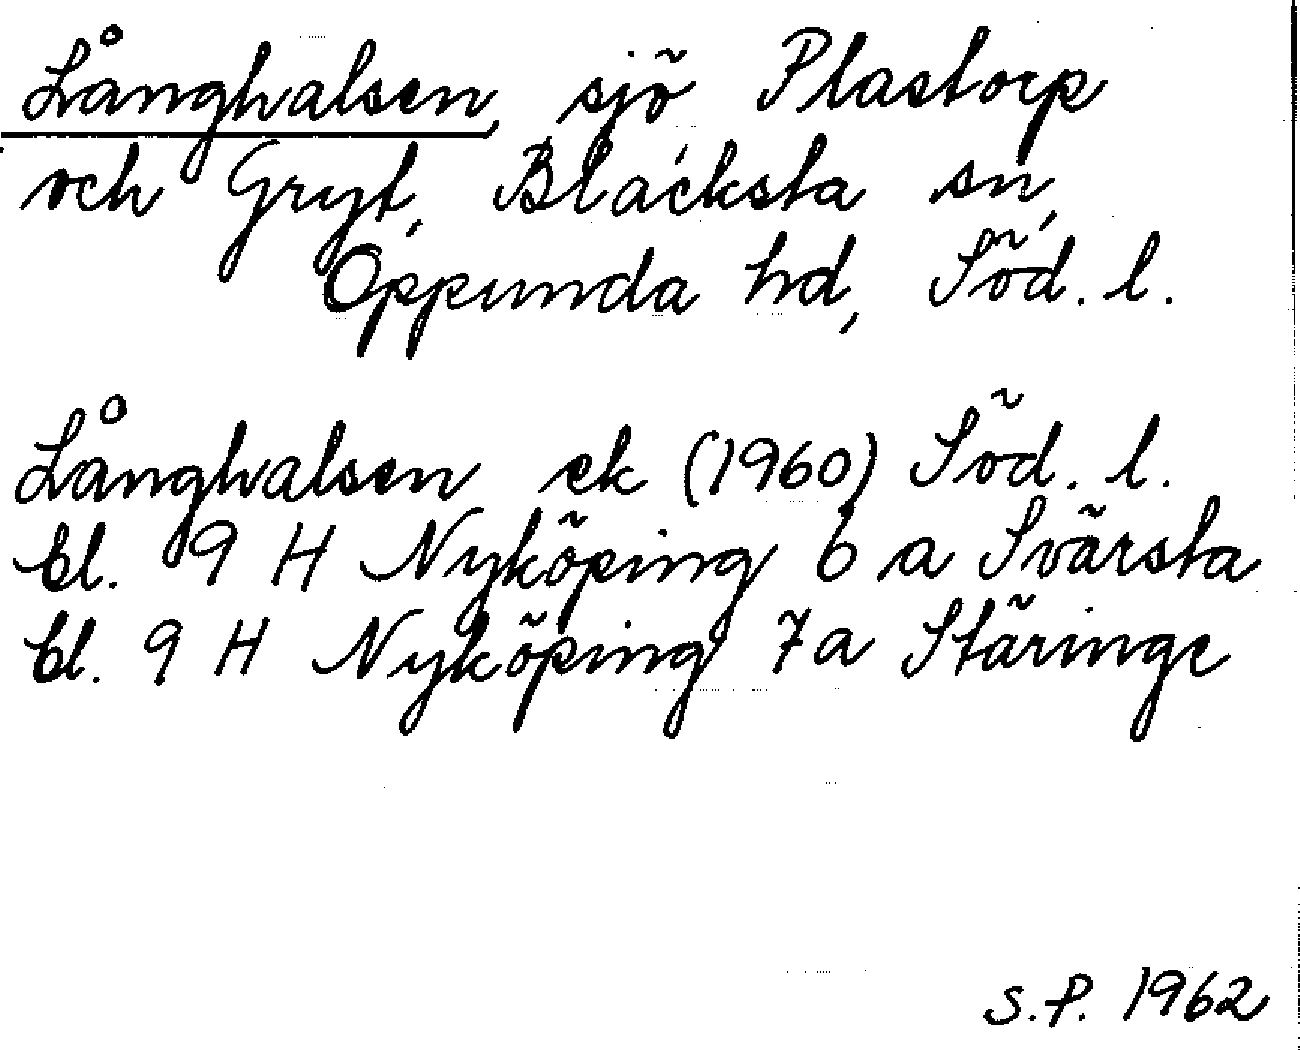 Långhalsen, sjö, Plastorp
och Gryt, Blacksta sn,
Oppunda hd, Söd. l.
Långhalsen ek (1960) Söd. l.
bl. 9 H Nyköping 6 a Svärsta
bl. 9 H Nyköping 7a Stäringe
S.P. 1962